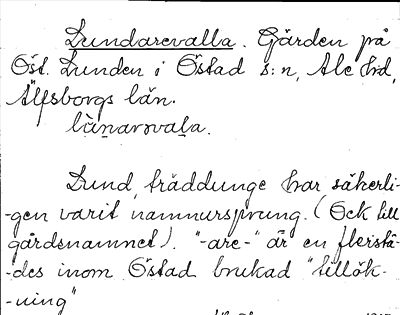 Lundarevalla. Gården på
Öst. Lunden i Östad s:n, Ale hd,
Älfsborgs län.
Lund, träddunge har säkerli-
-gen varit namnursprung. (Ock till
gårdsnamnet). "-are-" är en flerstä-
-des inom Östad brukad "tillök-
-ning"